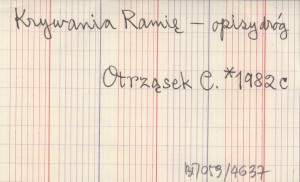 Krywania Ramię – opisy dróg
Otrząsek C. *1982 c
BJ/059/4637